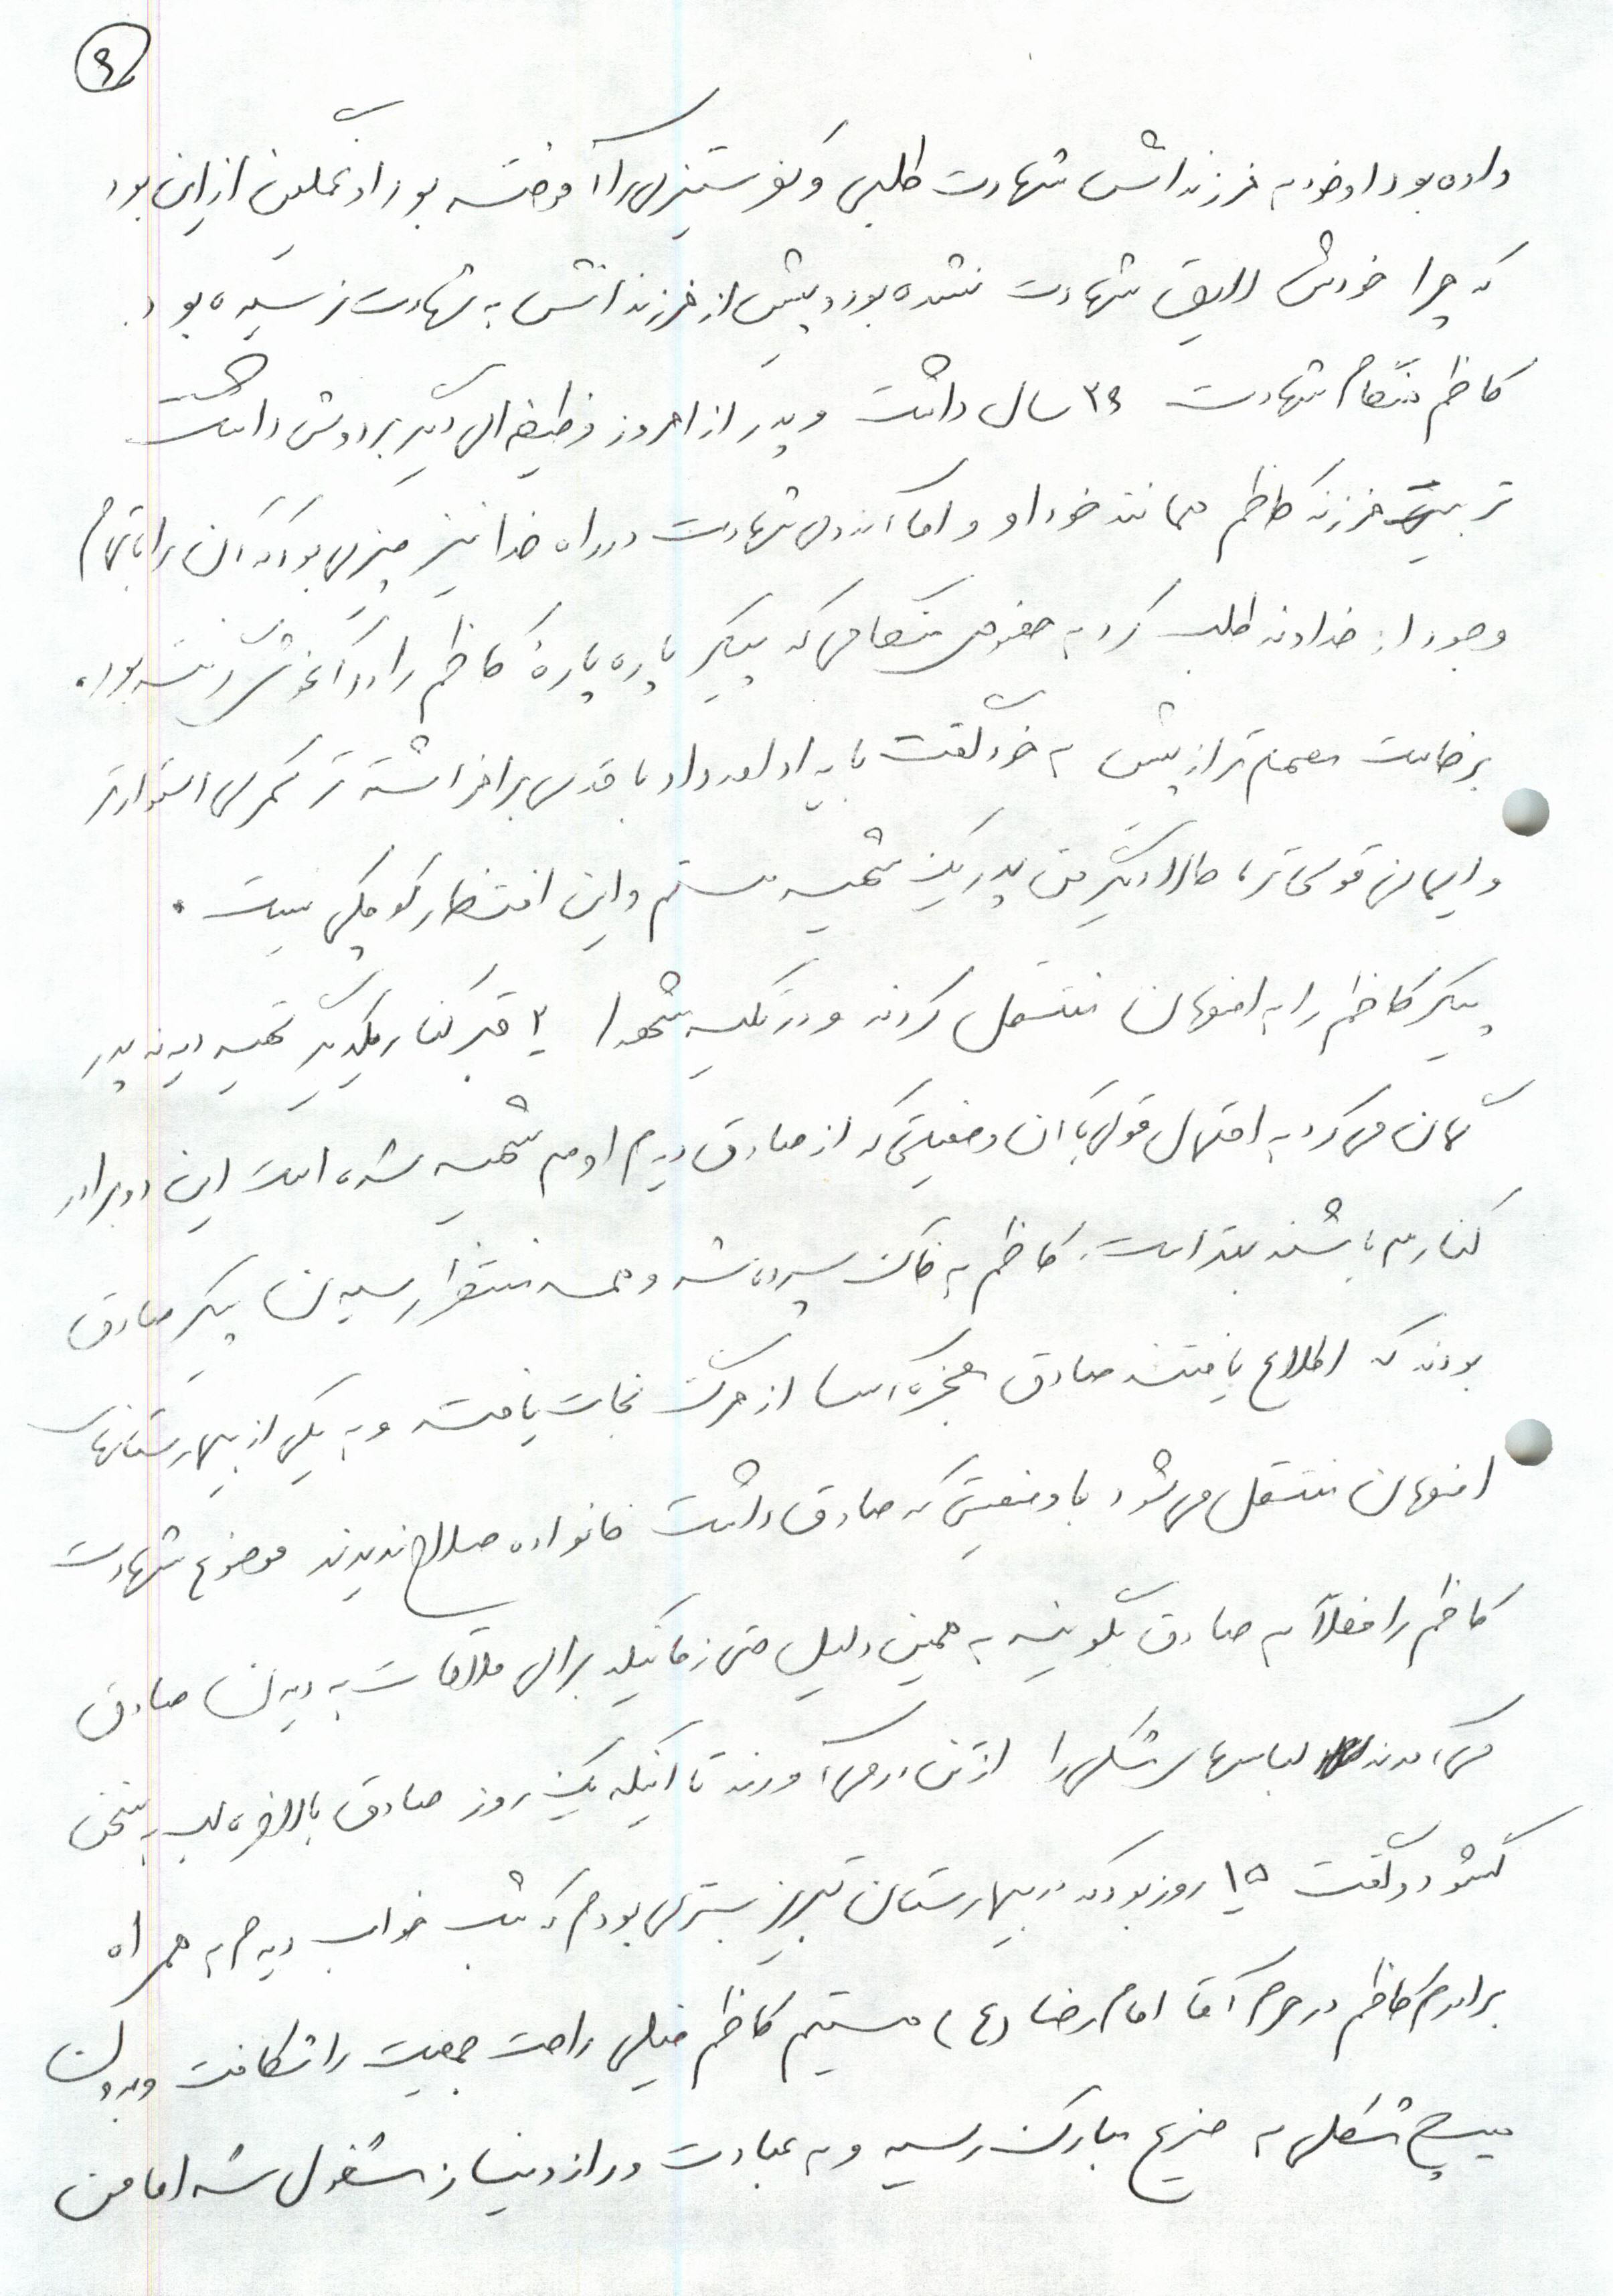 ۹
داده بود او خود به فرزندانش شهادت طلبی و کفر ستیزی را آموخته بود او غمگین از این بود
که چرا خودش لایق شهادت نشده بود و پیش از فرزندانش به شهادت نرسیده بود.
کاظم هنگام شهادت ۲۶ سال داشت و پدر از امروز وظیفه ای دیگر بر دوش داشت
تربیت فرزند کاظم همانند خود او و اما آرزوی شهادت در راه خدا نیز چیزی بود که آن را با تمام
وجود از خداوند طلب کرد به خصوص هنگامی که پیکر پاره پارۀ کاظم را در آغوش گرفته بود.
برخاست مصمم تر از پیش به خود گفت باید ادامه داد با قدی برافراشته تر کمری استوارتر
و ایمانی قوی تر، حالا دیگر من پدر یک شهید هستم و این افتخار کوچکی نیست.
پیکر کاظم را به اصفهان منتقل کردند و در تکیه شهدا ۲ قبر کنار یکدیگر تهیه دیدند پدر
گمان می کرد به احتمال قوی با آن وضعیتی که از صادق دیدم او هم شهید شده است این دو برادر
کنار هم باشند بهتر است. کاظم به خاک سپرده شد و همه منتظر رسیدن پیکر صادق
بودند که اطلاع یافتند صادق معجزه آسا از مرگ نجات یافته و به یکی از بیمارستانهای
اصفهان منتقل می شود با وضعیتی که صادق داشت خانواده صلاح ندیدند موضوع شهادت
کاظم را فعلاً به صادق بگویند به همین دلیل حتی زمانیکه برای ملاقات به دیدن صادق
می آمدند لباسهای مشکی را از تن در می آوردند تا اینکه یک روز صادق بالاخره لب به سخن
گشود و گفت ۱۵ روز بود که در بیمارستان تبریز بستری بودم که شب خواب دیدم به همراه
برادرم کاظم در حرم آقا امام رضا (ع) هستیم کاظم خیلی راحت جمعیت را شکافت و بدون
هیچ مشکلی به ضریح مبارک رسید و به عبادت و راز و نیاز مشغول شد اما من